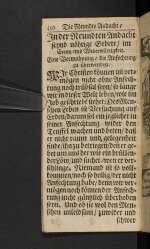 Die Neundte Andacht /
In der Neundten Andacht
seynd nöhtige Gebett / im
Creutz und Widerwärtigkeit.
Eine Vermahnung / die Anfechtung
zu überwinden.
Wir Christen können im ver-
mögen nicht ohne Anfech-
tung noch trübsal seyn / so lange
wir in dieser Welt leben / wie im
Job geschrieben stehet: Deß Men-
schen Leben ist Versuchung auf
Erden / darum soll ein jeder in
seiner Anfechtung wider den
Teuffel wachen und beten / daß
er nicht raum und gelegenheit
finde ihn zu betriegen / der nicht
schläfft / wie ein brül-
lender
und suchet / wen er ver-
Niemand ist so voll-
kommen / und so heilig / der nicht
Anfechtung habe / denn wir ver-
mögen noch können der Anfech-
tung nicht gäntzlich überhoben
seyn. Und ob sie wol den Men-
schen unleidsam / zuwider und
schwer